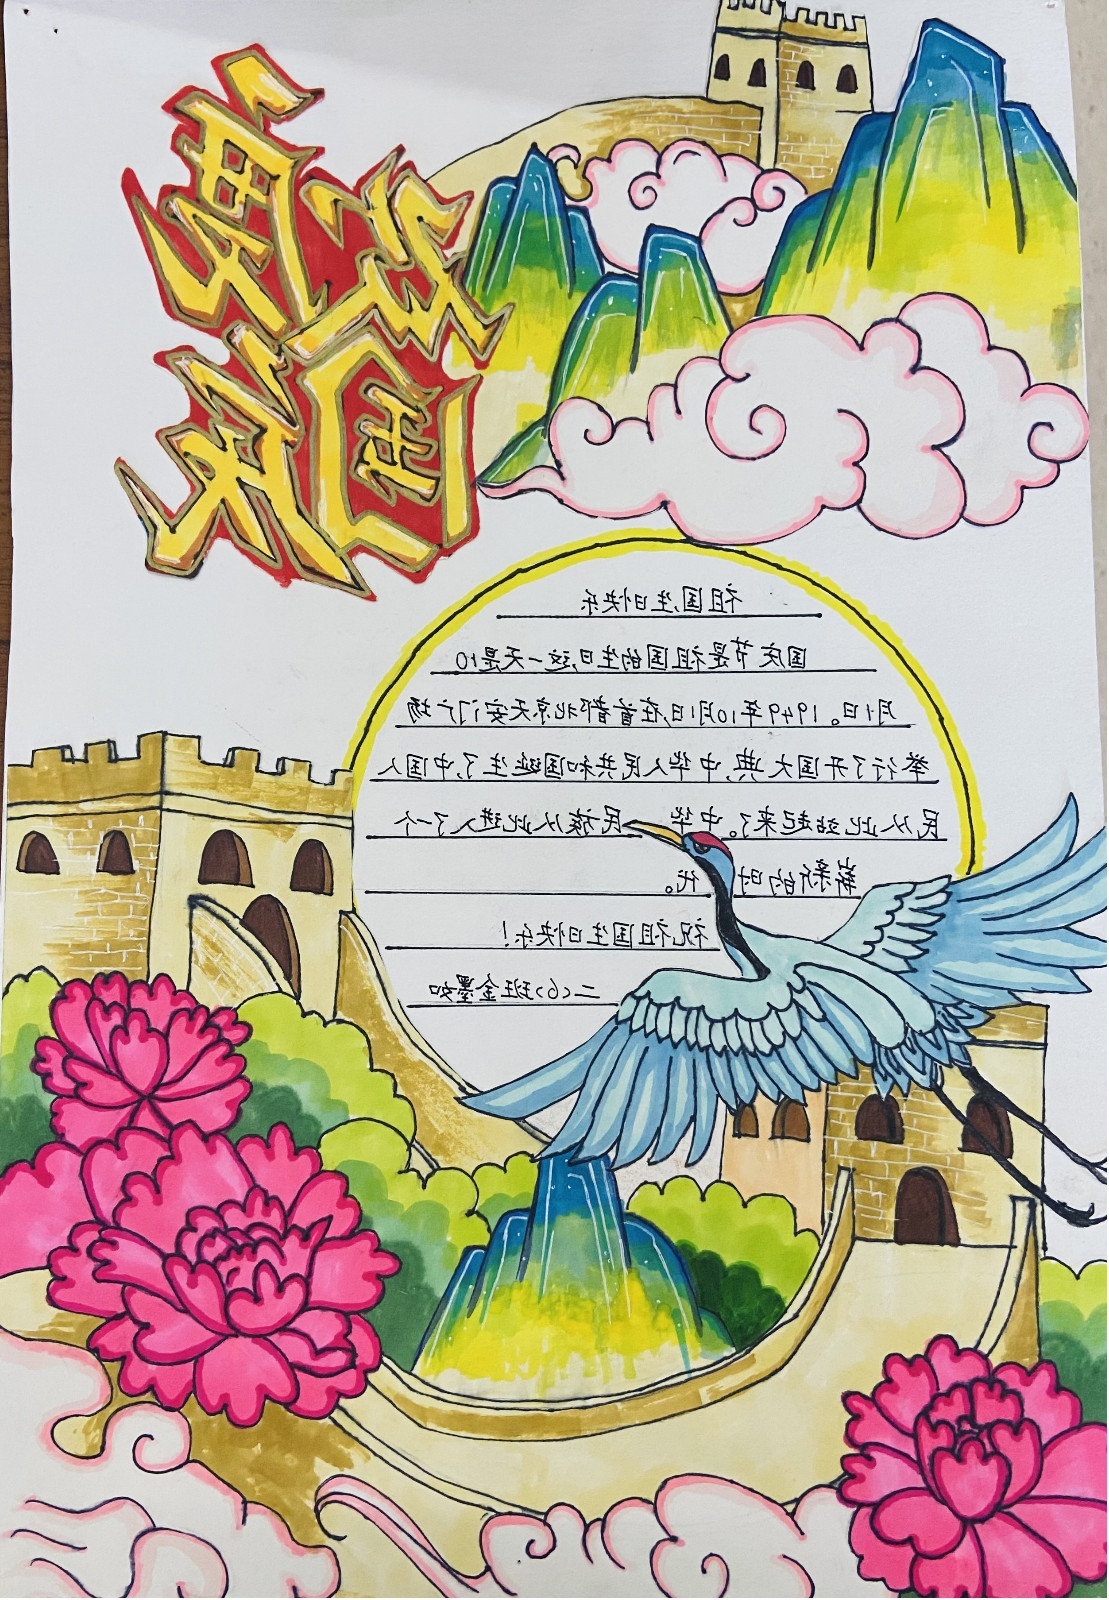 欢度
国庆
祖国,生日快乐
国庆节是祖国的生日,这一天是10
月1日。1949年10月1日,在首都北京天安门广场
举行了开国大典,中华人民共和国诞生了,中国人
民从此站起来了。中华民族从此进入了一个
崭新的时代。
祝祖国生日快乐!
二(6)班金墨如